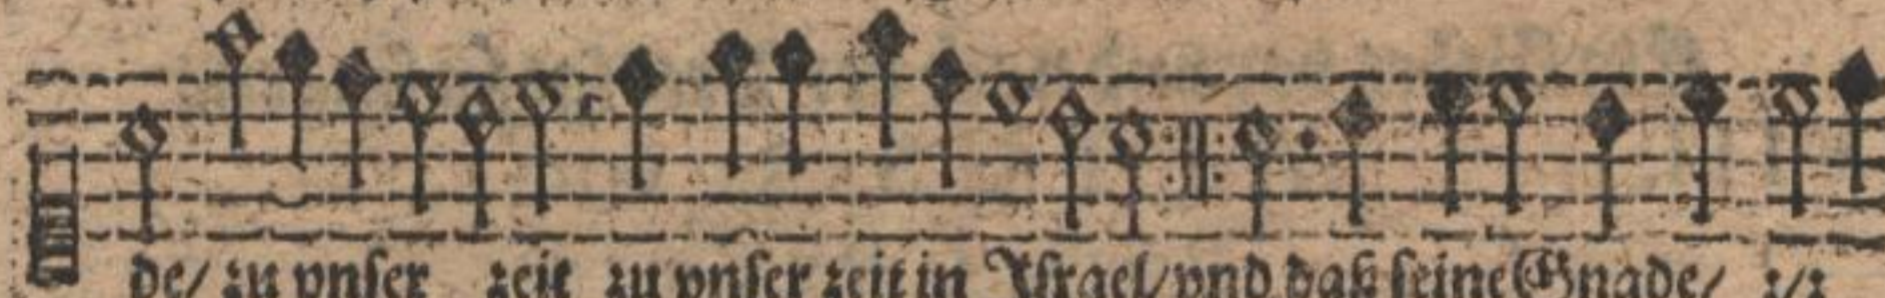 de/ zu vnser zeit zu vnser zeit in Israel/ vnd daß seine Gnade/ :/: